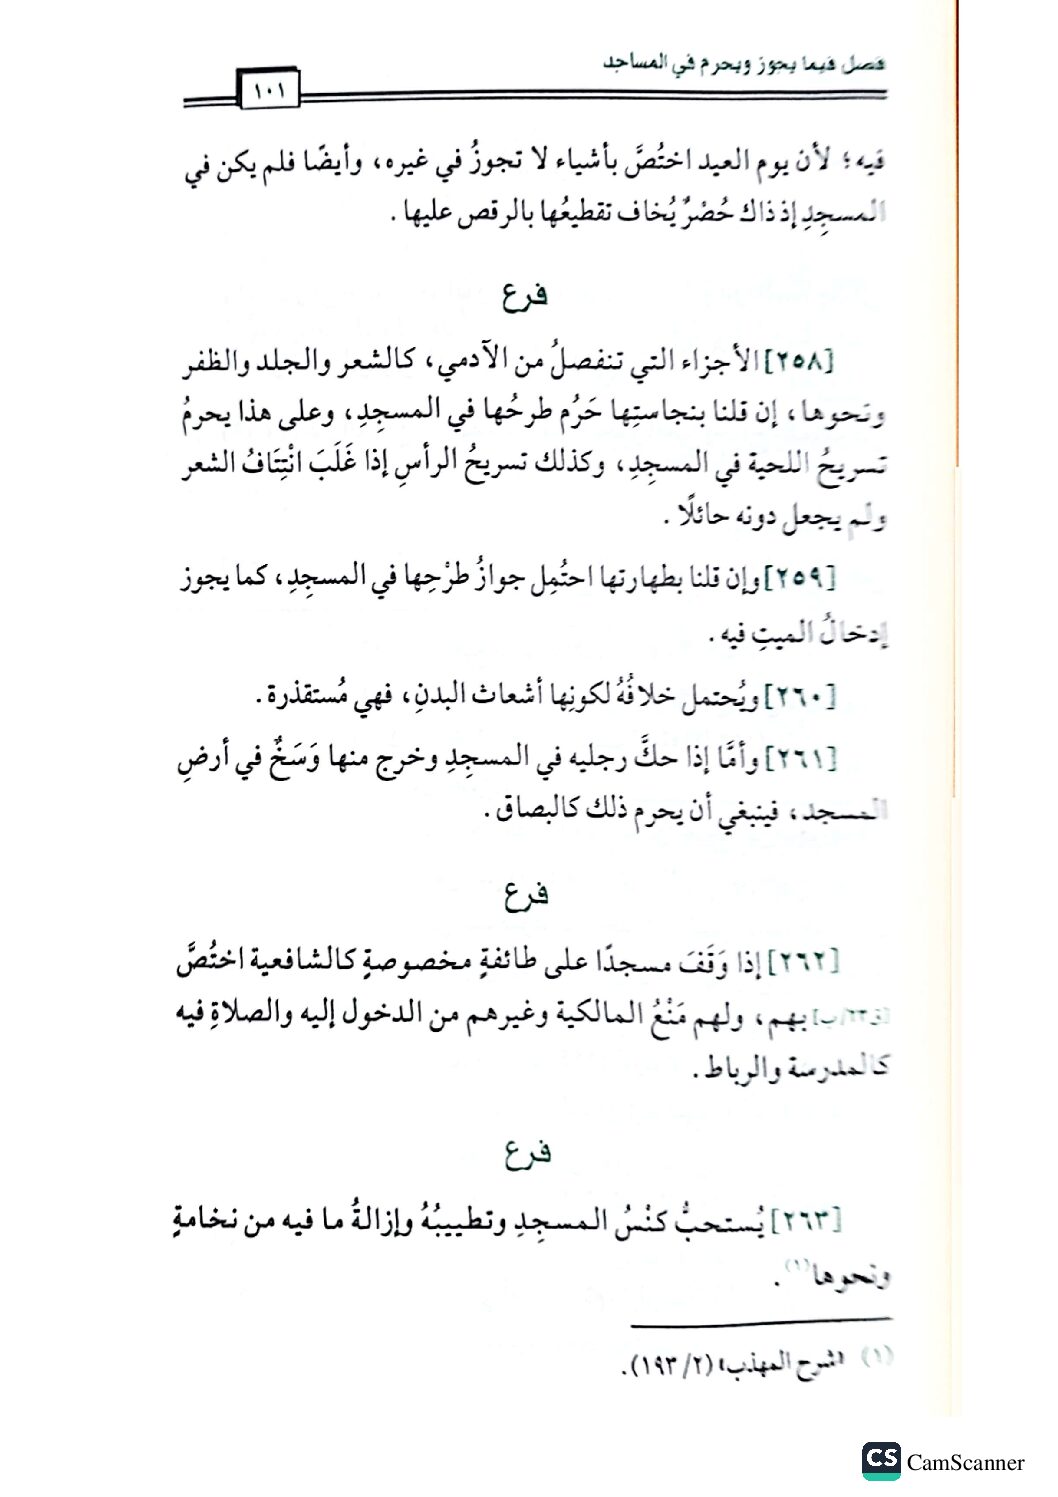 فصل فيما يجوز ويحرم في المساجد
١٠١
فيه؛ لأن يوم العيد اختُصَّ بأشياء لا تجوزُ في غيره، وأيضًا فلم يكن في
المسجِدِ إذ ذاك حُصْرٌ يُخاف تقطيعُها بالرقص عليها.
فرع
[٢٥٨] الأجزاء التي تنفصلُ من الآدمي، كالشعر والجلد والظفر
ونحوها، إن قلنا بنجاستِها حَرُم طرحُها في المسجِدِ، وعلى هذا يحرمُ
تسريحُ اللحية في المسجِدِ، وكذلك تسريحُ الرأسِ إذا غَلَبَ انْتِتَافُ الشعر
ولم يجعل دونه حائلًا.
[٢٥٩] وإن قلنا بطهارتها احتُمِل جوازُ طرْحِها في المسجِدِ، كما يجوز
إدخالُ الميتِ فيه.
[٢٦٠] ويُحتمل خلافُهُ لكونِها أشعاث البدنِ، فهي مُستقذرة.
[٢٦١] وأمَّا إذا حكَّ رجليه في المسجِدِ وخرج منها وَسَخٌ في أرضِ
المسجد، فينبغي أن يحرم ذلك كالبصاق.
فرع
[٢٦٢] إذا وَقَفَ مسجدًا على طائفةٍ مخصوصةٍ كالشافعية اختُصَّ
[ق٢٣/ب] بهم، ولهم مَنْعُ المالكية وغيرهم من الدخول إليه والصلاةِ فيه
كالمدرسة والرباط.
فرع
[٢٦٣] يُستحبُّ كنْسُ المسجِدِ وتطييبُهُ وإزالةُ ما فيه من نخامةٍ
ونحوها(١).
(١) «شرح المهذب» (٢/ ١٩٣).
CS CamScanner